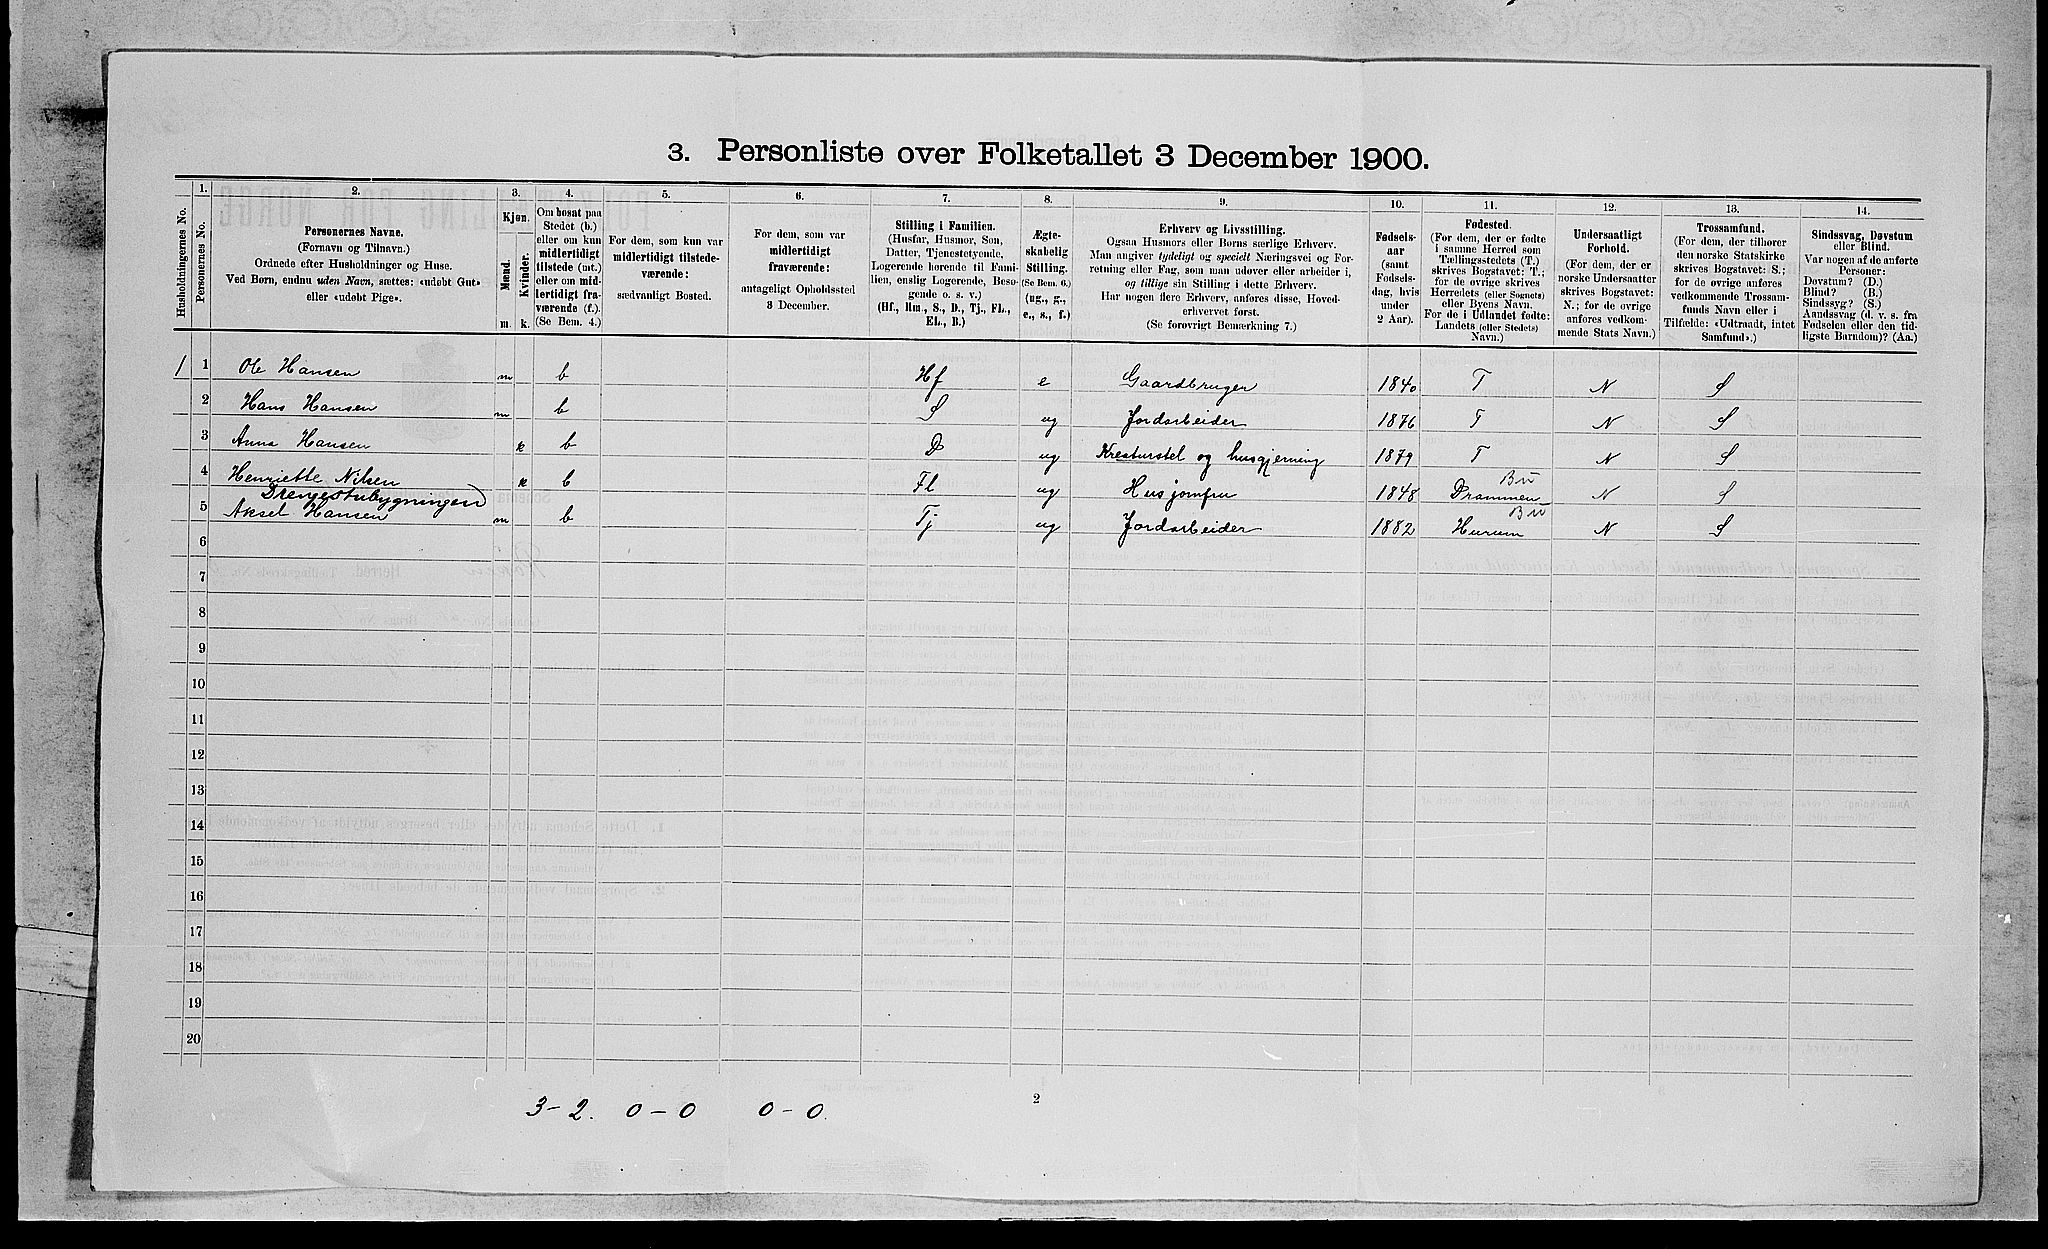 3. Personliste over Folketallet 3 December 1900.
Husholdningernes No.
1.
Personernes No.
2.
Personernes Navne.
(Fornavn og Tilnavn.)
Ordnede efter Husholdninger og Huse.
Ved Børn, endnu uden Navn, sættes: «udøbt Gut»
eller «udøbt Pige».
3.
Kjøn.
Mænd.
Kvinder.
m. k.
4.
Om bosat paa
Stedet (b.)
eller om kun
midlertidigt
tilstede (mt.)
eller om mid-
lertidigt fra-
værende (f.).
(Se Bem. 4.)
5.
For dem, som kun var
midlertidigt tilstede-
værende:
sædvanligt Bosted.
6.
For dem, som var
midlertidigt
fraværende:
antageligt Opholdssted
3 December.
7.
Stilling i Familien.
(Husfar, Husmor, Søn,
Datter, Tjenestetyende,
Logerende hørende til Fami-
lien, enslig Logerende, Besø-
gende o. s. v.)
(Hf., Hm., S., D., Tj., FL.,
EL., B.)
8.
Ægte-
skabelig
Stilling.
(Se Bem. 6.)
(ug., g.,
e., s., f.)
9.
Erhverv og Livsstilling.
Ogsaa Husmors eller Børns særlige Erhverv.
Man angiver tydeligt og specielt Næringsvei og For-
retning eller Fag, som man udøver eller arbeider i,
og tillige sin Stilling i dette Erhverv.
Har nogen flere Erhverv, anføres disse, Hoved-
erhvervet først.
(Se forøvrigt Bemærkning 7.)
10.
Fødsels-
aar
(samt
Fødsels-
dag, hvis
under
2 Aar).
11.
Fødested.
(For dem, der er fødte
i samme Herred som
Tællingsstedets (T.)
skrives Bogstavet: T.;
for de øvrige skrives
Herredets (eller Sognets)
eller Byens Navn.
For de i Udlandet fødte:
Landets (eller Stedets)
Navn.)
12.
Undersaatligt
Forhold.
(For dem, der er
norske Undersaatter
skrives Bogstavet:
N.; for de øvrige
anføres vedkom-
mende Stats Navn.)
13.
Trossamfund.
(For dem, der tilhører
den norske Statskirke
skrives Bogstavet: S.;
for de øvrige anføres
vedkommende Trossam-
funds Navn eller i
Tilfælde: «Udtraadt, intet
Samfund».)
14.
Sindssvag, Døvstum
eller Blind.
Var nogen af de anførte
Personer:
Døvstum? (D.)
Blind? (B.)
Sindssyg? (S.)
Aandssvag (d. v. s. fra
Fødselen eller den tid-
ligste Barndom)? (Aa.)
1 1 Ole Hansen m b Hf e Gaardbruger 1840 T N S
2 Hans Hansen m b S ug Jordarbeider 1876 T N S
3 Anna Hansen k b D ug Kreaturstel og husgjerning 1879 T N S
4 Henriette Nilsen k b Fl ug Husjomfru 1848 Drammen Bu N S
Drengestubygningen
5 Aksel Hansen m b Tj ug Jordarbeider 1882 Hurum Bu N S
6
7
8
9
10
11
12
13
14
15
16
17
18
19
20
3-2. 0-0 0-0.
2